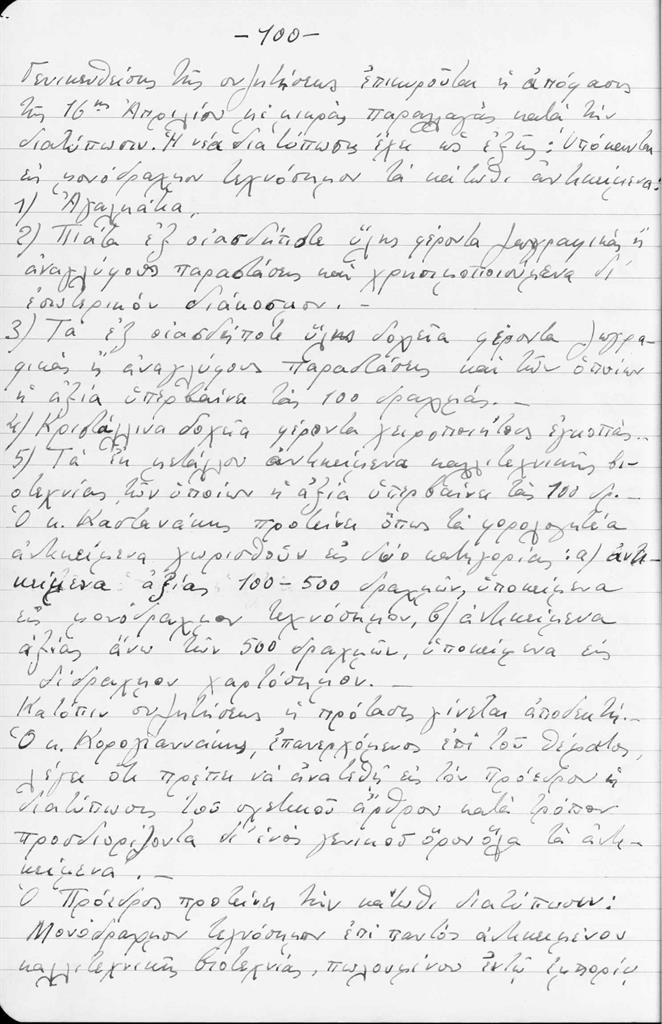 -100-
Γενικευθείσης τῆς συζητήσεως ἐπικυροῦται ἡ ἀπόφασις
τῆς 16ης Ἀπριλίου μὲ μικρὰς παραλλαγὰς κατὰ τὴν
διατύπωσιν. Ἡ νέα διατύπωσις ἔχει ὡς ἑξῆς: Ὑπόκεινται
εἰς μονόδραχμον τεχνόσημον τὰ κάτωθι ἀντικείμενα:
1) Ἀγαλμάτια,
2) Πιάτα ἐξ οἱασδήποτε ὕλης φέροντα ζωγραφικὰς ἢ
ἀναγλύφους παραστάσεις καὶ χρησιμοποιούμενα δι'
ἐσωτερικὸν διάκοσμον. -
3) Τὰ ἐξ οἱασδήποτε ὕλης δοχεῖα φέροντα ζωγρα-
φικὰς ἢ ἀναγλύφους παραστάσεις καὶ τῶν ὁποίων
ἡ ἀξία ὑπερβαίνει τὰς 100 δραχμάς. -
4) Κριστάλλινα δοχεῖα φέροντα χειροποιήτους ἐγκοπάς. -
5) Τὰ ἐκ μετάλλου ἀντικείμενα καλλιτεχνικῆς βι-
οτεχνίας τῶν ὁποίων ἡ ἀξία ὑπερβαίνει τὰς 100 δρ. -
Ὁ κ. Καστανάκης προτείνει ὅπως τὰ φορολογητέα
ἀντικείμενα χωρισθοῦν εἰς δύο κατηγορίας: α) ἀντι-
κείμενα ἀξίας 100-500 δραχμῶν, ὑποκείμενα
εἰς μονόδραχμον τεχνόσημον, β) ἀντικείμενα
ἀξίας ἄνω τῶν 500 δραχμῶν, ὑποκείμενα εἰς
δίδραχμον χαρτόσημον. -
Κατόπιν συζητήσεως ἡ πρότασις γίνεται ἀποδεκτή. -
Ὁ κ. Καρογιαννάκης, ἐπανερχόμενος ἐπὶ τοῦ θέματος,
λέγει ὅτι πρέπει νὰ ἀνατεθῇ εἰς τὸν Πρόεδρον ἡ
διατύπωσις τοῦ σχετικοῦ ἄρθρου κατὰ τρόπον
προσδιορίζοντα δι' ἑνὸς γενικοῦ ὅρου ὅλα τὰ ἀντι-
κείμενα. -
Ὁ Πρόεδρος προτείνει τὴν κάτωθι διατύπωσιν:
Μονόδραχμον τεχνόσημον ἐπὶ παντὸς ἀντικειμένου
καλλιτεχνικῆς βιοτεχνίας, πωλουμένου ἐν τῷ ἐμπορίῳ